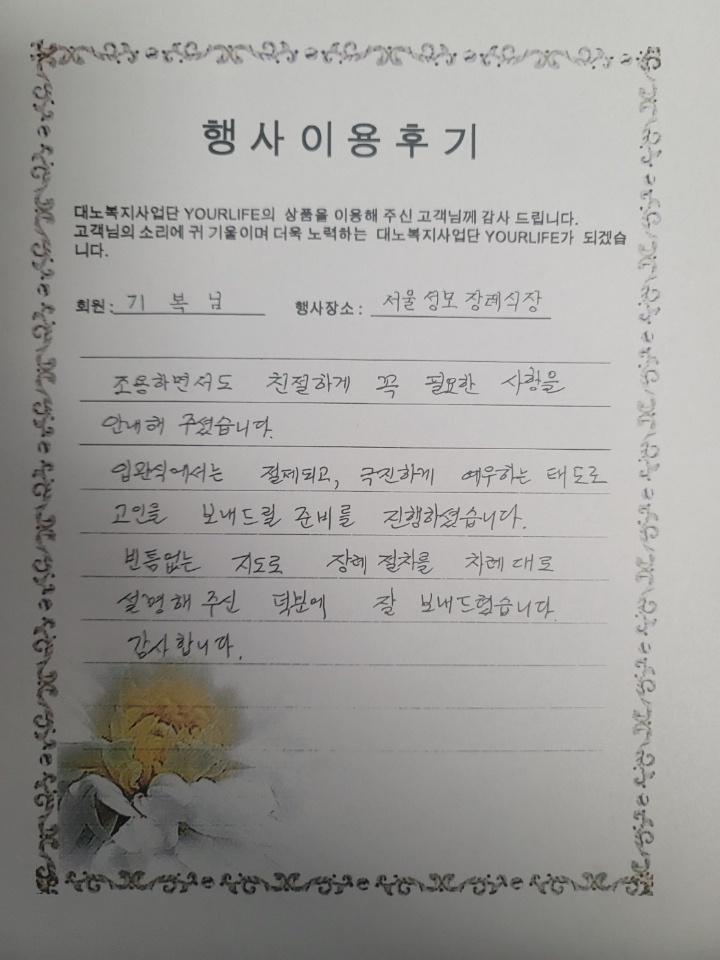 행사이용후기
대노복지사업단 YOURLIFE의 상품을 이용해 주신 고객님께 감사 드립니다.
고객님의 소리에 귀 기울이며 더욱 노력하는 대노복지사업단 YOURLIFE가 되겠습
니다.
회원 : 기 복 님 행사장소 : 서울성모장례식장
조용하면서도 친절하게 꼭 필요한 사항을
안내해 주셨습니다.
입관식에서는 절제되고, 극진하게 예우하는 태도로
고인을 보내드릴 준비를 진행하셨습니다.
빈틈없는 지도로 장례 절차를 차례대로
설명해 주신 덕분에 잘 보내드렸습니다
감사합니다.